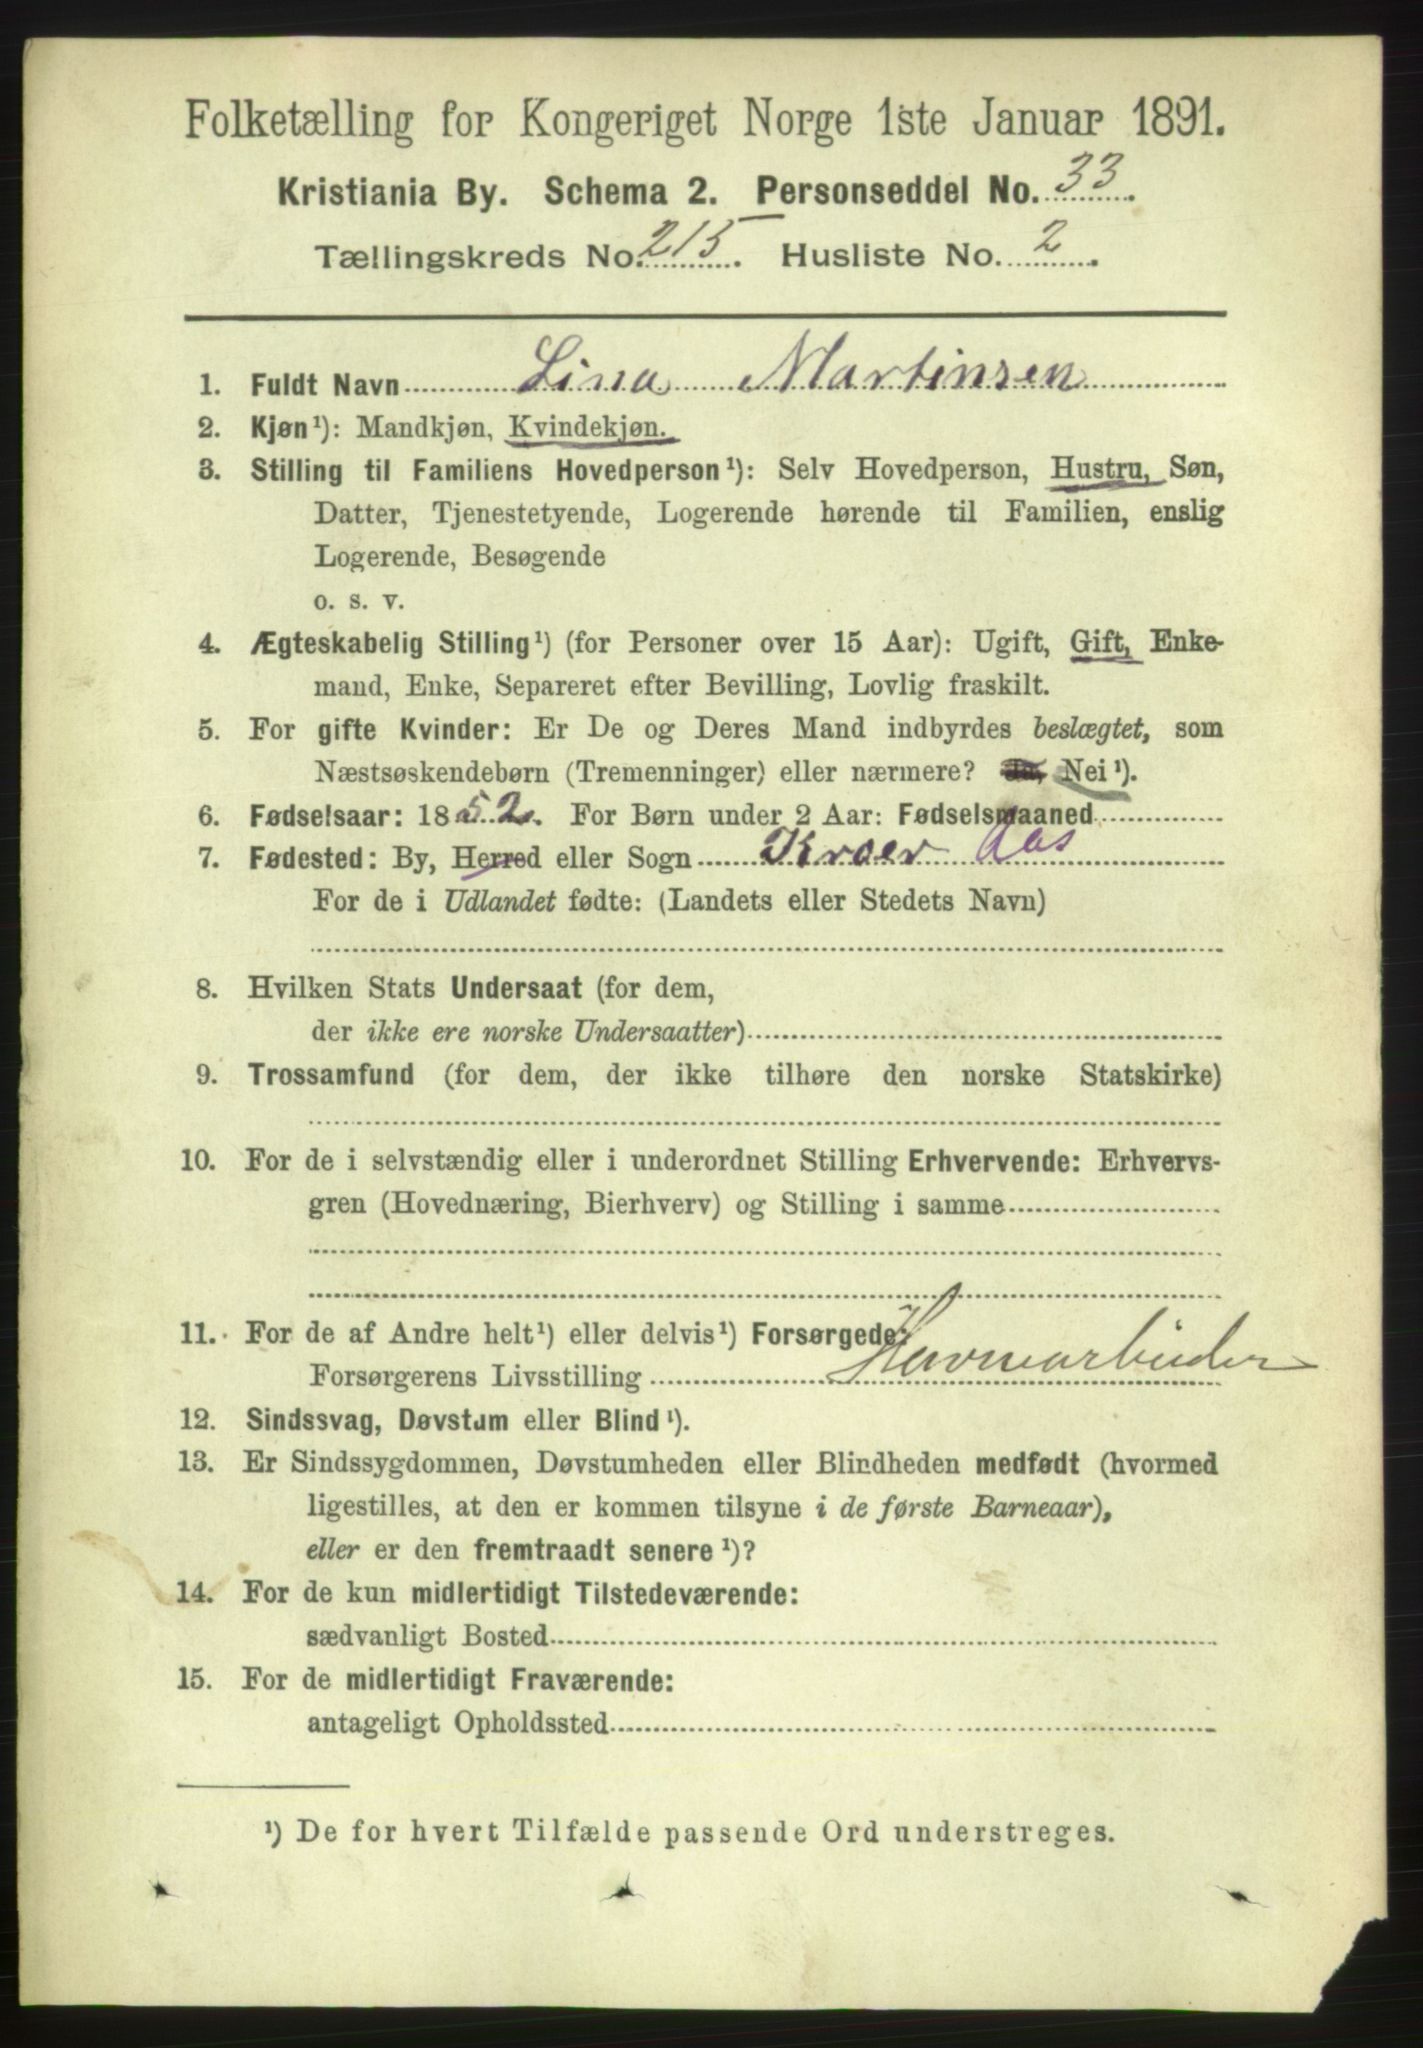 Folketælling for Kongeriget Norge 1ste Januar 1891.
Kristiania By. Schema 2. Personseddel No. 33.
Tællingskreds No. 215. Husliste No. 2.
1. Fuldt Navn Lina Martinsen
2. Kjøn¹): Mandkjøn, Kvindekjøn.
3. Stilling til Familiens Hovedperson¹): Selv Hovedperson, Hustru, Søn,
Datter, Tjenestetyende, Logerende hørende til Familien, enslig
Logerende, Besøgende
o. s. v.
4. Ægteskabelig Stilling¹) (for Personer over 15 Aar): Ugift, Gift, Enke-
mand, Enke, Separeret efter Bevilling, Lovlig fraskilt.
5. For gifte Kvinder: Er De og Deres Mand indbyrdes beslægtet, som
Næstsøskendebørn (Tremenninger) eller nærmere? Ja, Nei¹).
6. Fødselsaar: 1852. For Børn under 2 Aar: Fødselsmaaned
7. Fødested: By, Herred eller Sogn Kroer Aas
For de i Udlandet fødte: (Landets eller Stedets Navn)
8. Hvilken Stats Undersaat (for dem,
der ikke ere norske Undersaatter)
9. Trossamfund (for dem, der ikke tilhøre den norske Statskirke)
10. For de i selvstændig eller i underordnet Stilling Erhvervende: Erhvervs-
gren (Hovednæring, Bierhverv) og Stilling i samme
11. For de af Andre helt¹) eller delvis¹) Forsørgede:
Forsørgerens Livsstilling Havnearbeider
12. Sindssvag, Døvstum eller Blind¹).
13. Er Sindssygdommen, Døvstumheden eller Blindheden medfødt (hvormed
ligestilles, at den er kommen tilsyne i de første Barneaar),
eller er den fremtraadt senere¹)?
14. For de kun midlertidigt Tilstedeværende:
sædvanligt Bosted
15. For de midlertidigt Fraværende:
antageligt Opholdssted
¹) De for hvert Tilfælde passende Ord understreges.